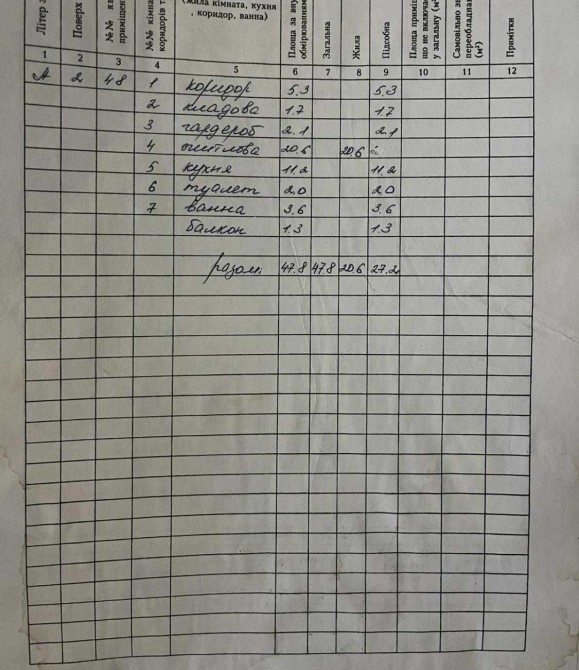 Літер з
Поверх
№№ кв
приміщен
№№ кімна
коридорів т
(жила кімната, кухня
, коридор, ванна)
Площа за вну
обмірюванням
Загальна
Жила
Підсобна
Площа примі
що не включає
у загальну (м²
Самовільно зв
переобладнан
(м²)
Примітки
1 2 3 4 5 6 7 8 9 10 11 12
А 2 48 1 коридор 5.3 5.3
2 кладова 1.7 1.7
3 гардероб 2.1 2.1
4 житлова 20.6 20.6
5 кухня 11.2 11.2
6 туалет 2.0 2.0
7 ванна 3.6 3.6
балкон 1.3 1.3
разом 47.8 47.8 20.6 27.2